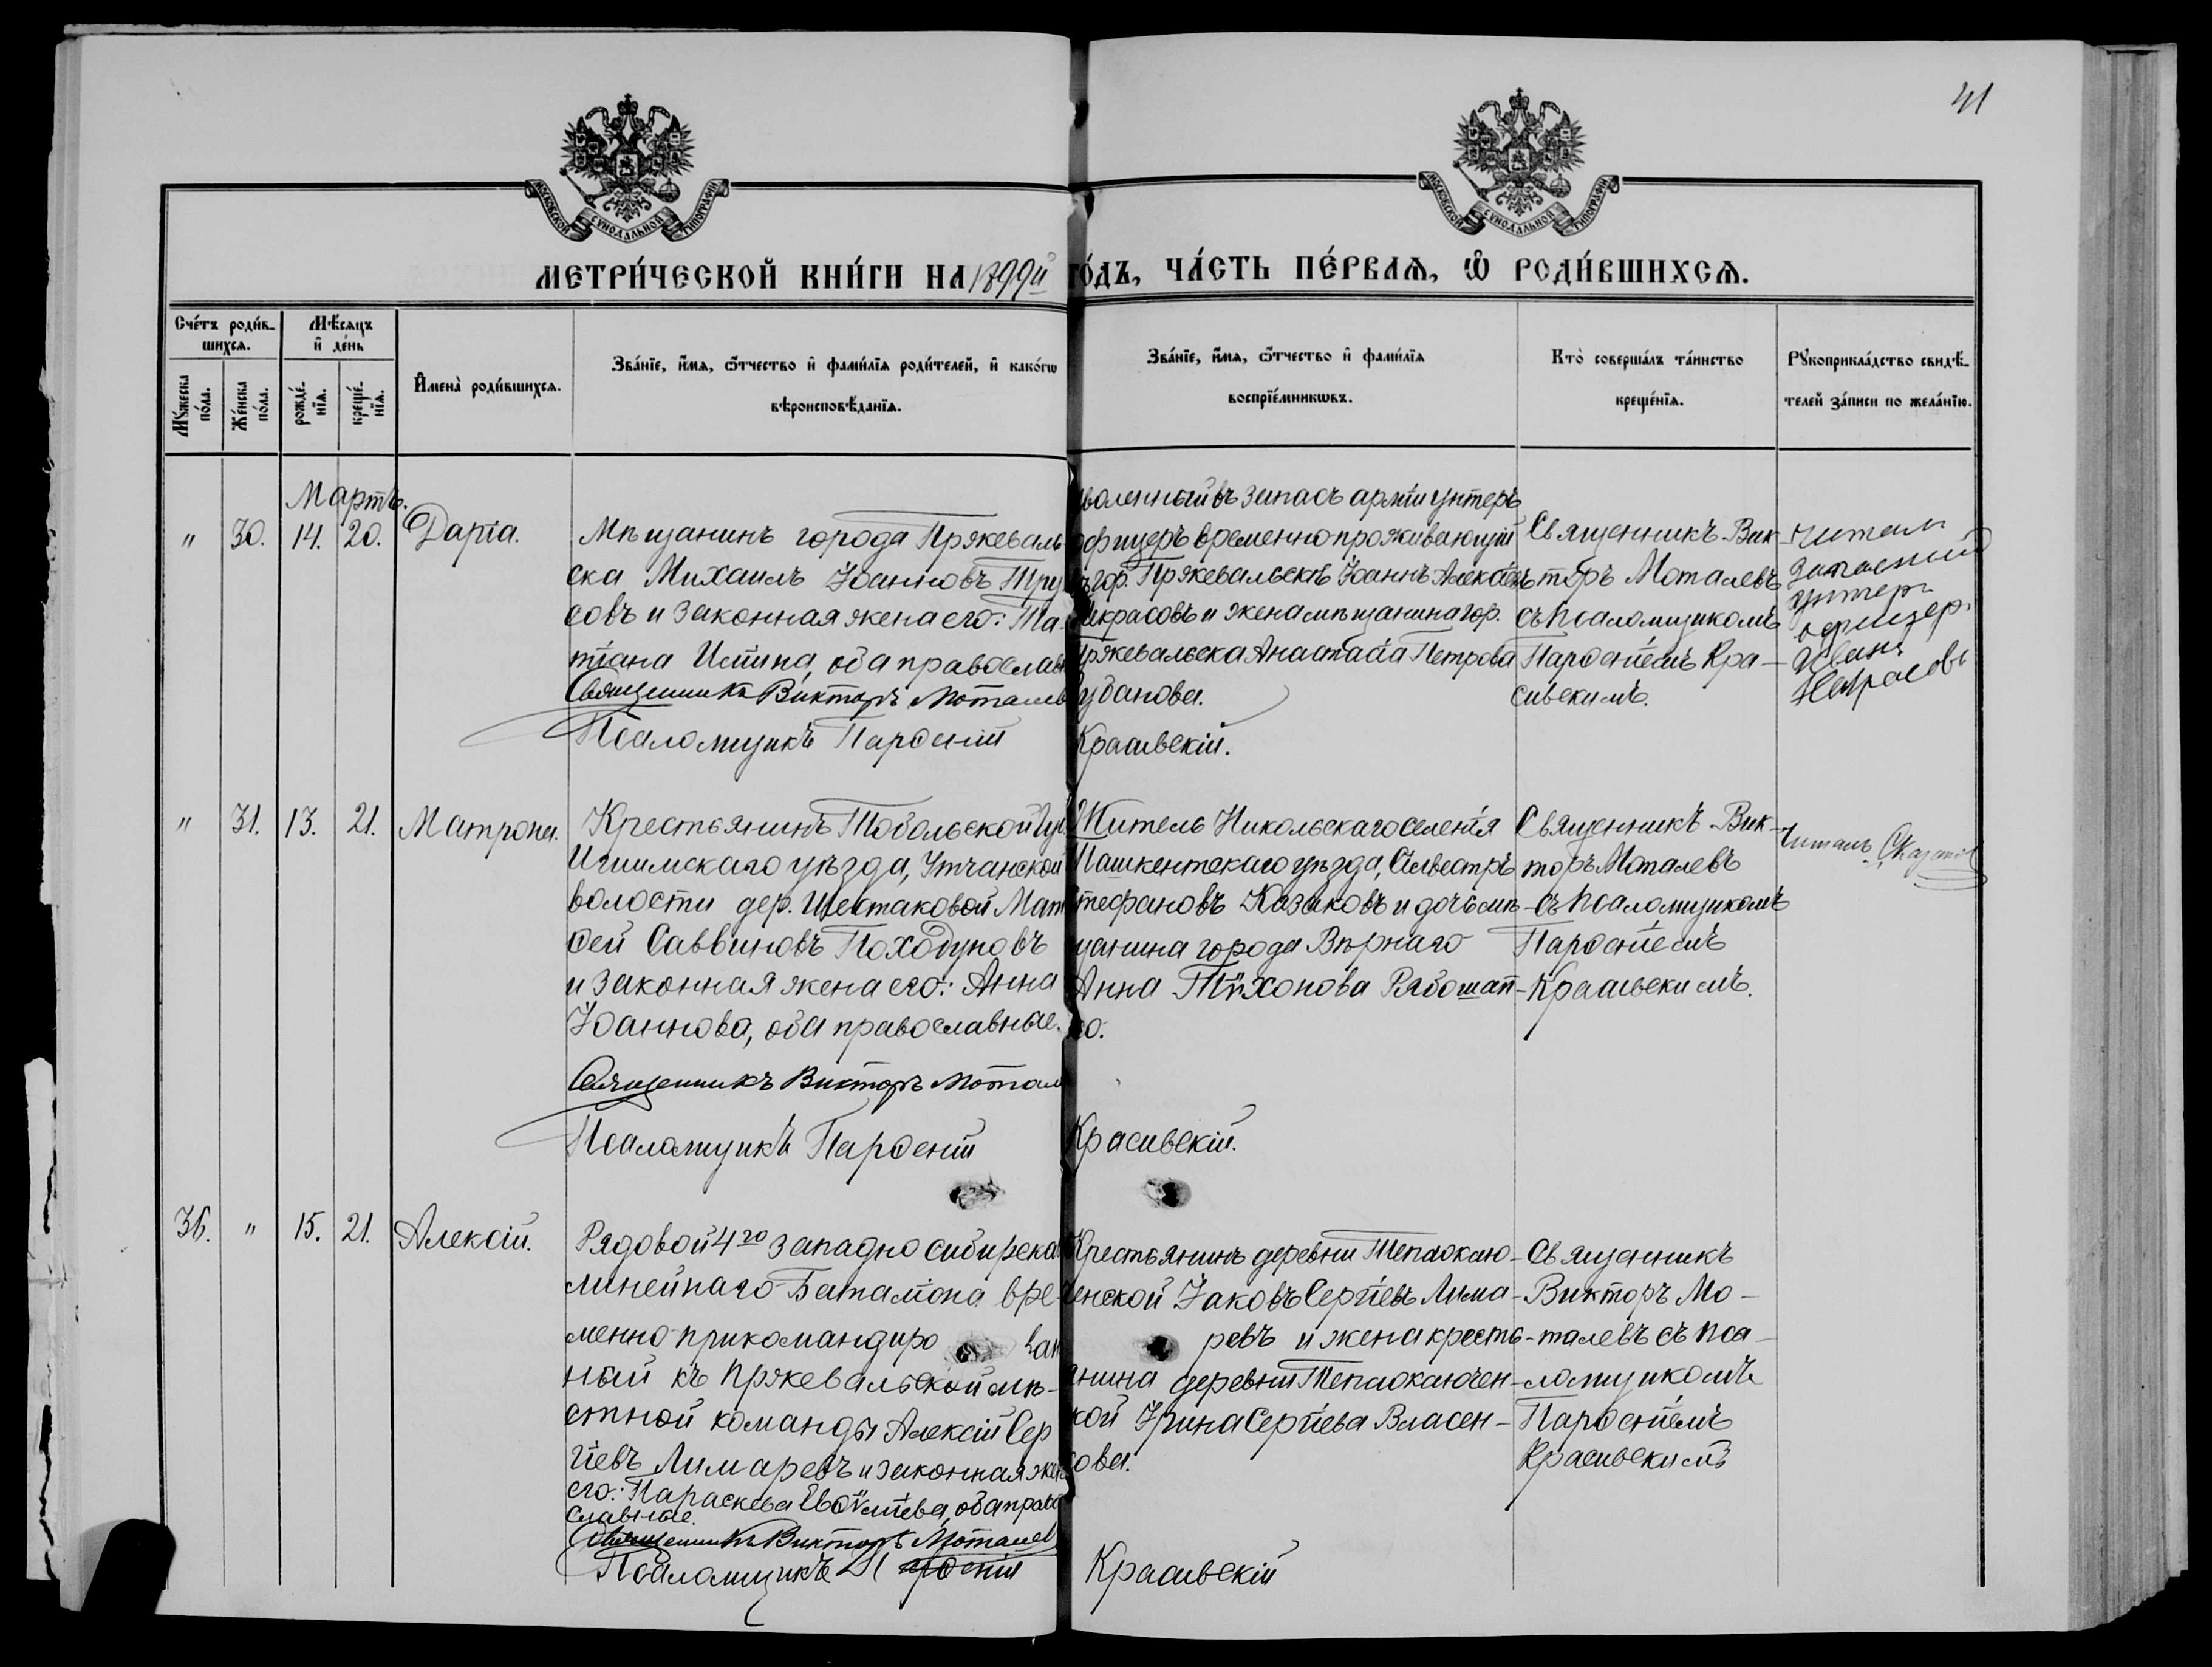 41
МОСКОВСКОЙ СѴНОДАЛЬНОЙ ТИПОГРАФІИ
МОСКОВСКОЙ СѴНОДАЛЬНОЙ ТИПОГРАФІИ
МЕТРИ́ЧЕСКОЙ КНИ́ГИ НА 1899й ГО́ДЪ, ЧА́СТЬ ПЕ́РВАѦ, Ѡ҆ РОДИ́ВШИХСѦ.
Сче́тъ роди́в-
шихсѧ.
Мꙋ́жеска по́ла.
Же́нска по́ла.
Мѣ́сяцъ
и҆ де́нь
рожде́-
нїѧ.
креще́-
нїѧ.
И҆мена̀ роди́вшихсѧ.
Зва́нїе, и҆́мѧ, ѻ҆́тчество и҆ фами́лїѧ роди́телей, и҆ како́гѡ
вѣроисповѣ́данїѧ.
Зва́нїе, и҆́мѧ, ѻ҆́тчество и҆ фами́лїѧ
воспрїе́мникѡвъ.
Кто̀ соверша́лъ та́инство
креще́нїѧ.
Рꙋкоприкла́дство свидѣ́-
телей за́писи по жела́нїю.
Мартъ.
" 30. 14. 20. Дарія.
Мѣщанинъ города Пржеваль
ска Михаилъ Іоанновъ Тру
совъ и законная жена его: Та-
тіана Иліина, оба православ
Священникъ Викторъ Моталев
Псаломщикъ Парѳеній Красивскій.
воленный въ запасъ арміи унтеръ
офицеръ временно проживающій
въ гор. Пржевальскѣ Іоаннъ Алексѣевъ
Некрасовъ и жена мѣщанина гор.
Пржевальска Анастасія Петрова
Губанова.
Священникъ Вик-
торъ Моталевъ
съ псаломщикомъ
Парѳеніемъ Кра-
сивскимъ.
читалъ
запасний
унтеръ
офицеръ
Иванъ
Некрасовъ
" 31. 13. 21. Матрона.
Крестьянинъ Тобольской Гу
Ишимскаго уѣзда, Утчанской
волости дер. Шестаковой Мат
ѳей Саввиновъ Походуновъ
и законная жена его: Анна
Іоаннова, оба православные.
Священникъ Викторъ Мотал
Псаломщикъ Парѳеній Красивскій.
Житель Никольскаго селенія
Ташкентскаго уѣзда, Сильвестръ
Стефановъ Казаковъ и дочь мѣ-
щанина города Вѣрнаго
Анна Тѵхонова Рябошап-
ко.
Священникъ Вик-
торъ Моталевъ
съ псаломщикомъ
Парѳеніемъ
Красивскимъ.
Читалъ
36. " 15. 21. Алексій.
Рядовой 4го западно сибирска
линейнаго Баталіона вре-
менно прикомандиро ван
ный къ Пржевальской мѣ-
стной команды Алексій Сер
гіевъ Лимаревъ и законная жена
его: Параскева Евѳѵміева, оба право
славные.
Священникъ Викторъ Моталев
Псаломщикъ Парѳеній Красивскій
Крестьянинъ деревни Теплоклю-
ченской Іаковъ Сергіевъ Лима-
ревъ и жена кресть-
янина деревни Теплоключен-
ской Ирина Сергіева Власен-
кова.
Священникъ
Викторъ Мо-
талевъ съ пса-
ломщикомъ
Парѳеніемъ
Красивскимъ